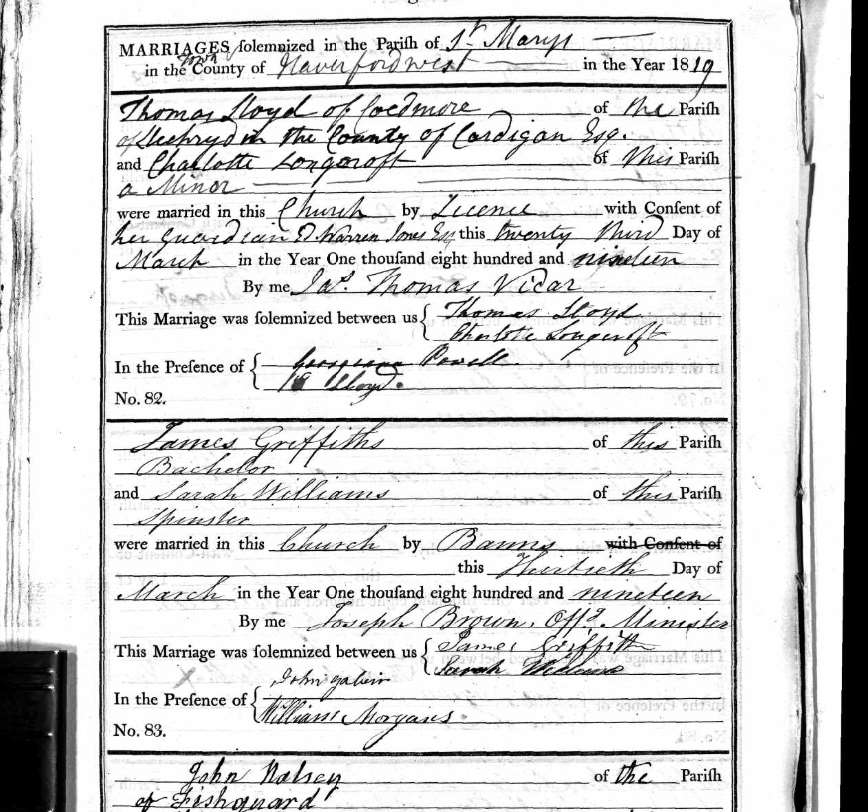 MARRIAGES ſolemnized in the Pariſh of St. Marys
in the Town County of Haverfordwest in the Year 1819
Thomas Lloyd of Coedmore of the Pariſh
of Llechryd in the County of Cardigan Esq.
and Charlotte Longcroft of this Pariſh
a Minor
were married in this Church by Licence with Conſent of
her Guardian D. Warren Jones Esq this twenty third Day of
March in the Year One thouſand eight hundred and nineteen
By me Jas. Thomas Vicar
This Marriage was ſolemnized between us { Thomas Lloyd
Charlotte Longcroft
In the Preſence of { Georgiana Powell
Lloyd.
No. 82.
James Griffiths of this Pariſh
Bachelor
and Sarah Williams of this Pariſh
Spinster
were married in this Church by Banns with Conſent of
this Thirtieth Day of
March in the Year One thouſand eight hundred and nineteen
By me Joseph Brown, Offg. Minister
This Marriage was ſolemnized between us { James Griffith
Sarah Williams
John
In the Preſence of { William Morgans
No. 83.
John Halsey of the Pariſh
of Fishguard